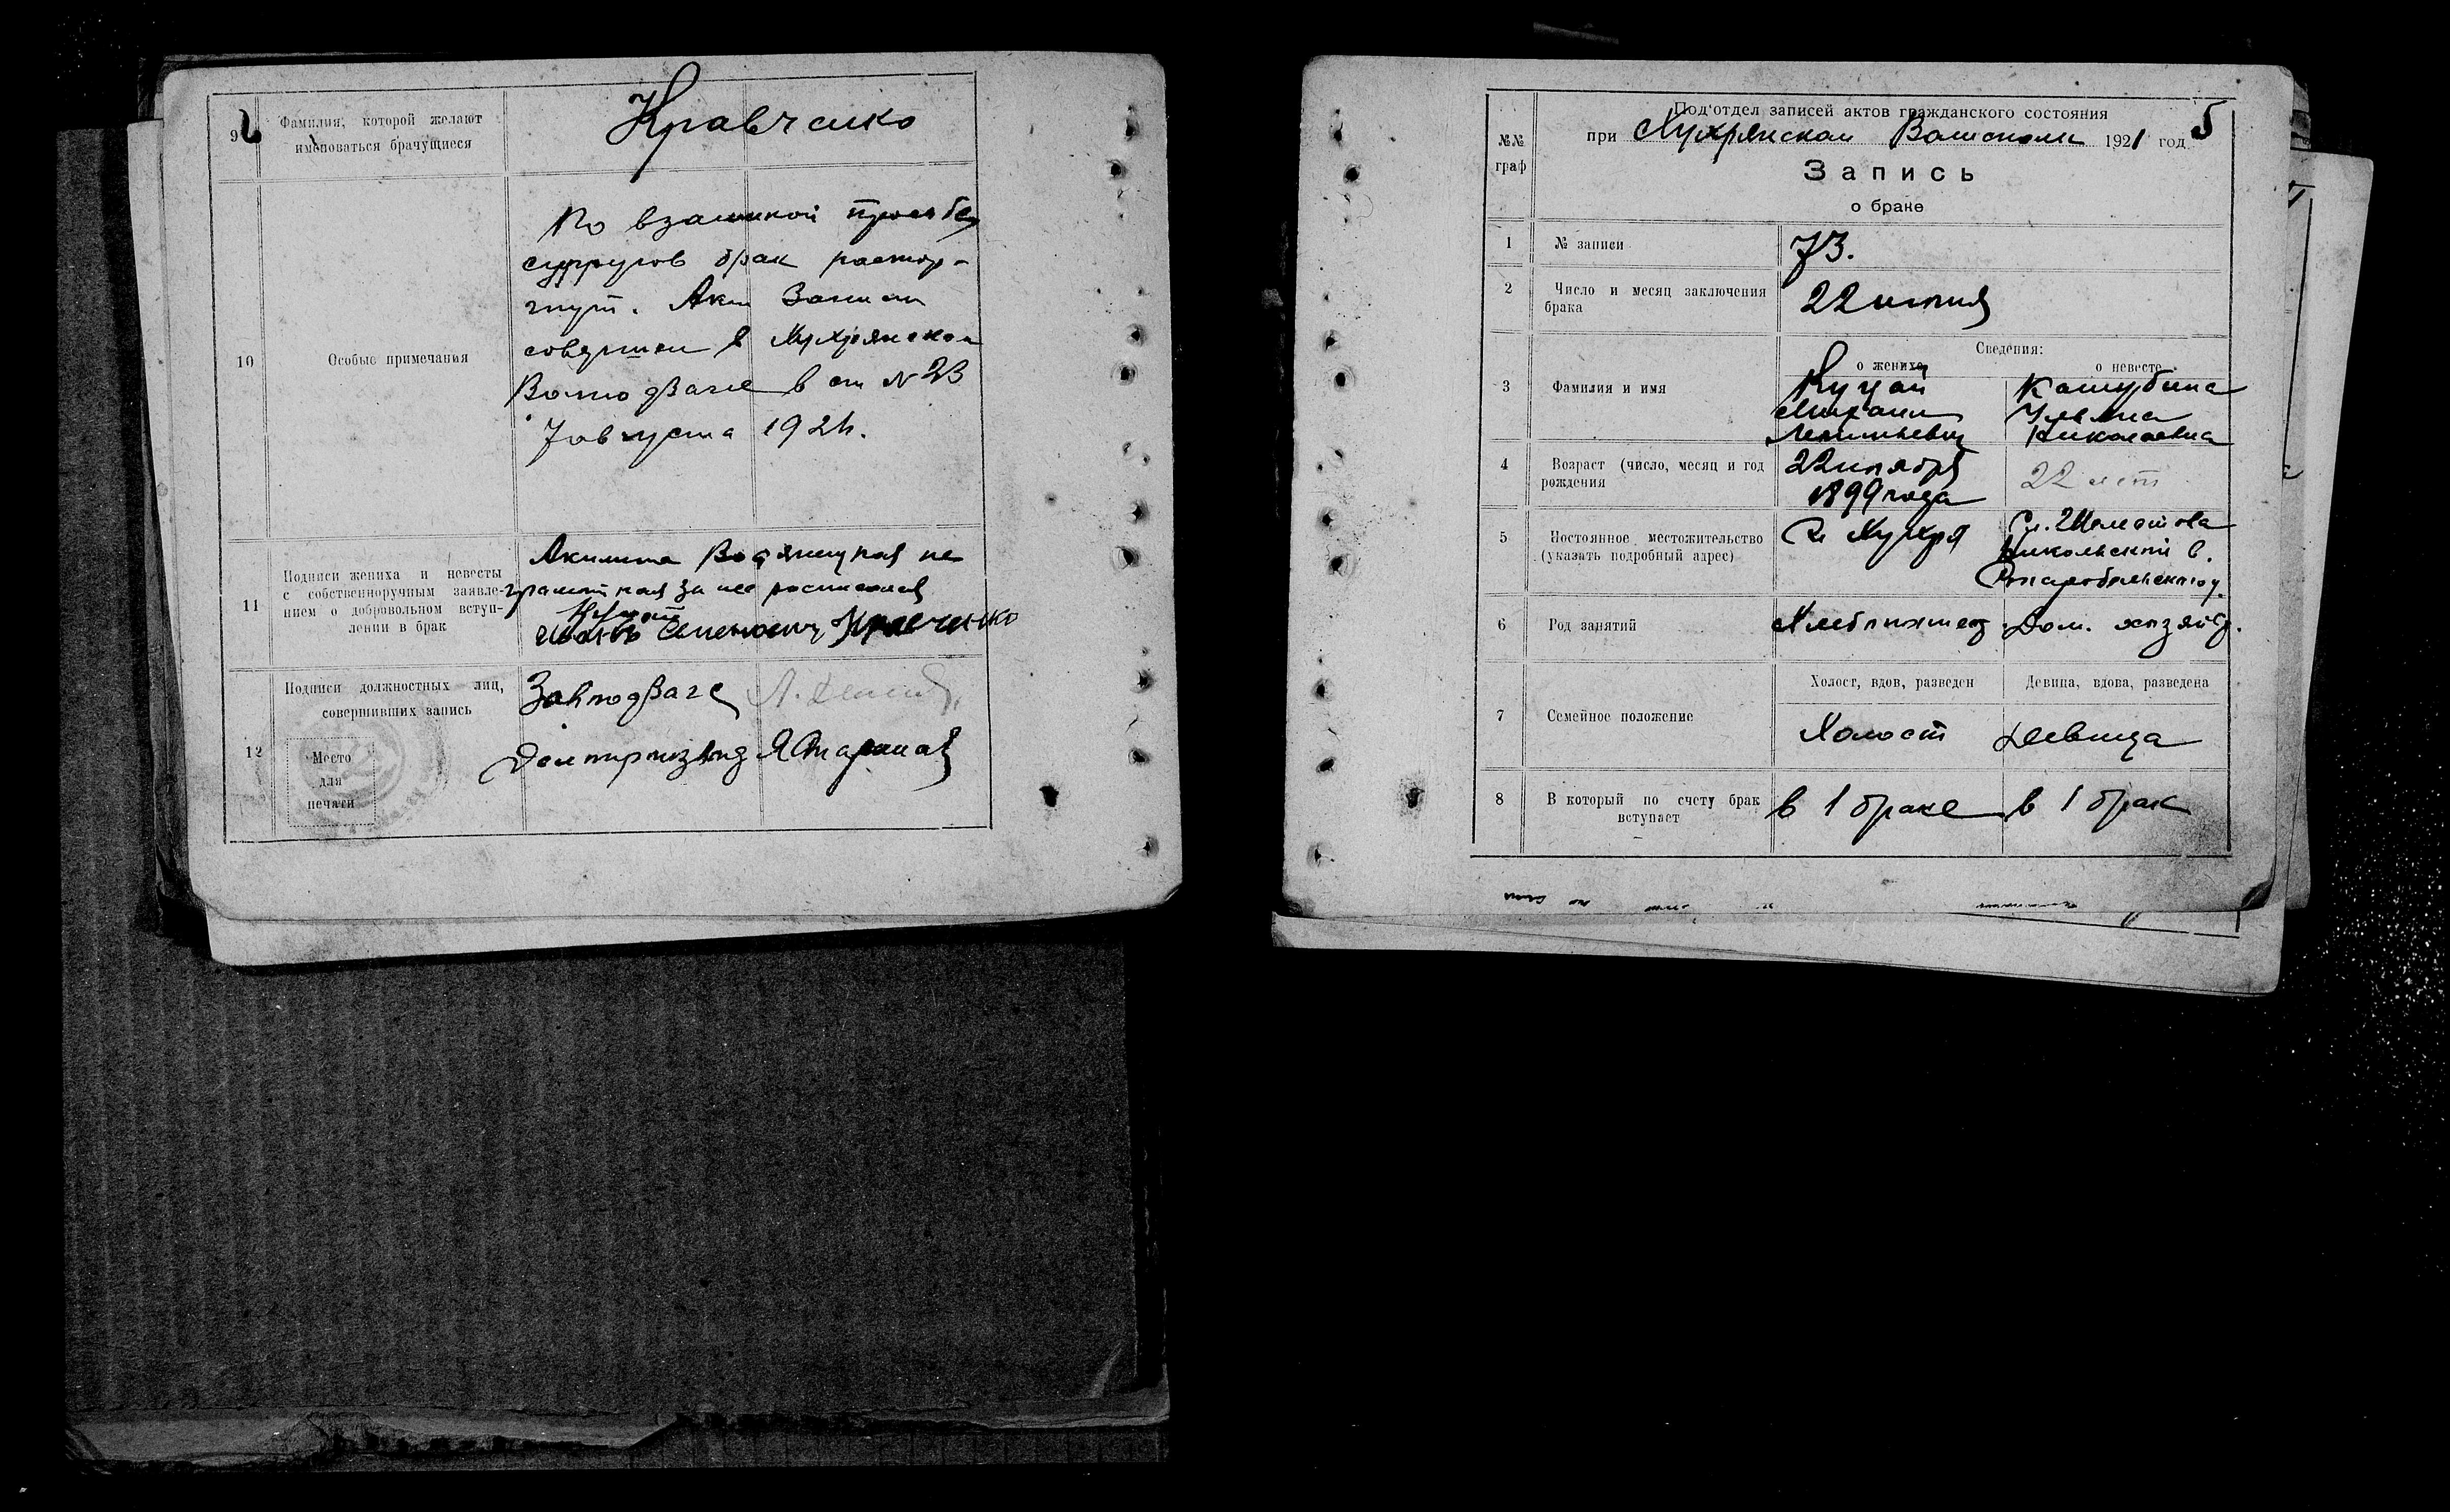 9
Фамилия, которой желают
именоваться брачущиеся
Кравченко
10
Особые примечания
По взаимной просьбе
супругов брак растор-
гнут. Акт Записи
совершен в Хухрянском
Волподзаге в ст № 23
7 августа 1924.
11
Подписи жениха и невесты
с собственноручным заявле-
нием о добровольном вступ-
лении в брак
Акилина не
грамотная за нее росписался
Семенович Кравченко
12
Подписи должностных лиц,
совершивших запись
Завподзаге
Место
для
печати
Делопроизвод
Подотдел записей актов гражданского состояния
№№
граф
при Хухрянском 1921 год
5
Запись
о браке
1
№ записи
73.
2
Число и месяц заключения
брака
22 июня
Сведения:
о женихе
о невесте
3
Фамилия и имя
Куцай
Михаил
Ульяна
Николаевна
4
Возраст (число, месяц и год
рождения
22 ноября
1899 года
22 лет
5
Постоянное местожительство
(указать подробный адрес)
С. Хухря
Сл.
Никольской в.
Старобельского у.
6
Род занятий
Хлебопашец
Дом. хозяйс.
7
Семейное положение
Холост, вдов, разведен
Девица, вдова, разведена
Холост
девица
8
В который по счету брак
вступает
в 1 браке
в 1 брак